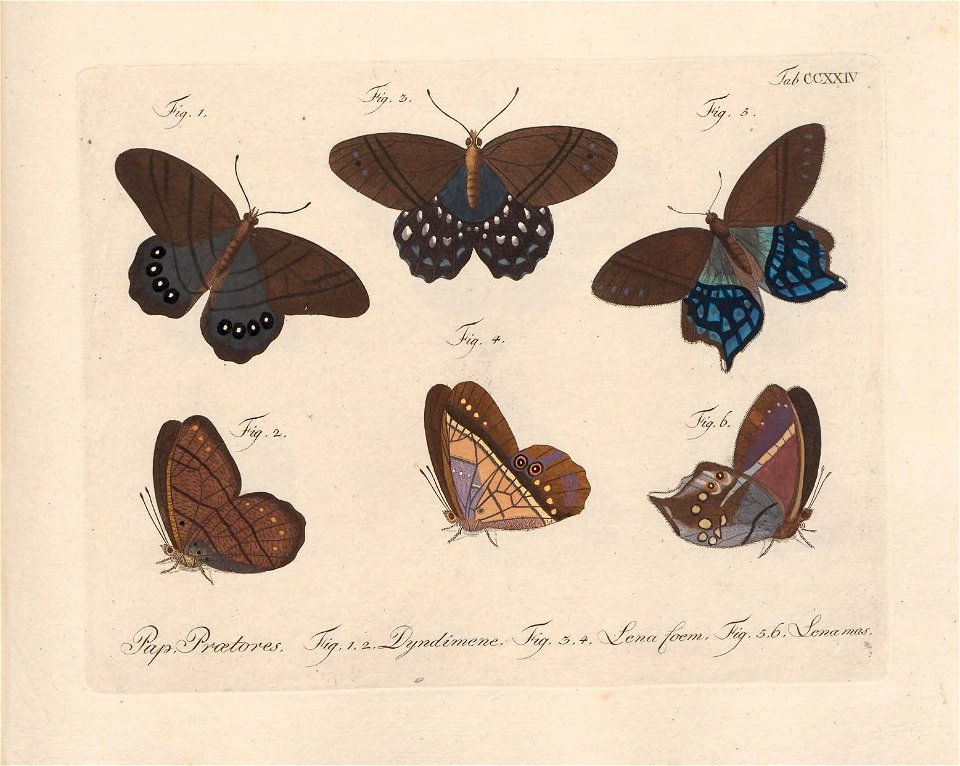 Tab CCXXIV
Fig. 1.
Fig. 3.
Fig. 5.
Fig. 4.
Fig. 2.
Fig. 6.
Pap. Prætores. Fig. 1. 2. Dyndimene. Fig. 3. 4. Lena foem. Fig. 5. 6. Lena mas.